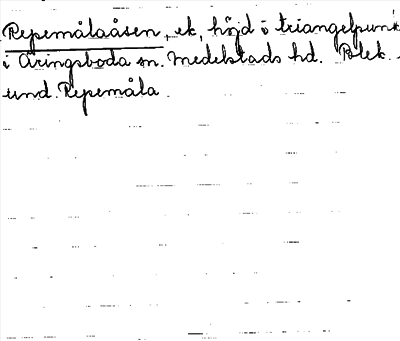 Repemålaåsen, ek, höjd i triangelpunk
i Åringsboda sn. Medelstads hd. Blek.
und. Repemåla